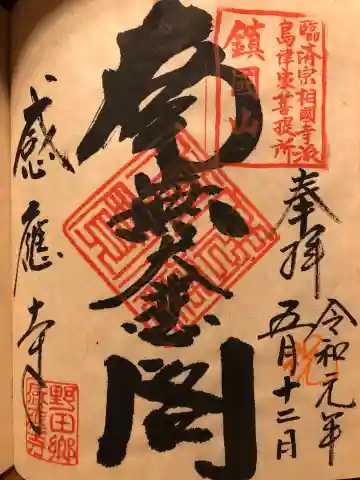 臨済宗相國寺派
島津家菩提所
鎮國山
奉拝
令和元年
祝
五月十二日
大悲閣
感應寺
野田郷
感應寺